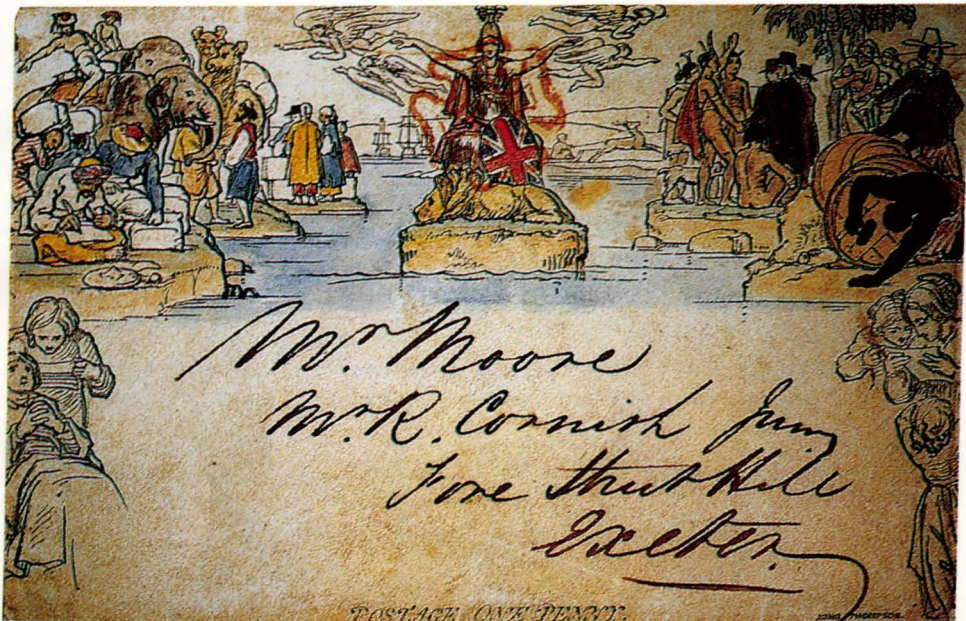 Mr. Moore
Mr. R. Cornish Junr
Fore Street Hill
Exeter.
POSTAGE ONE PENNY.
JOHN THOMPSON